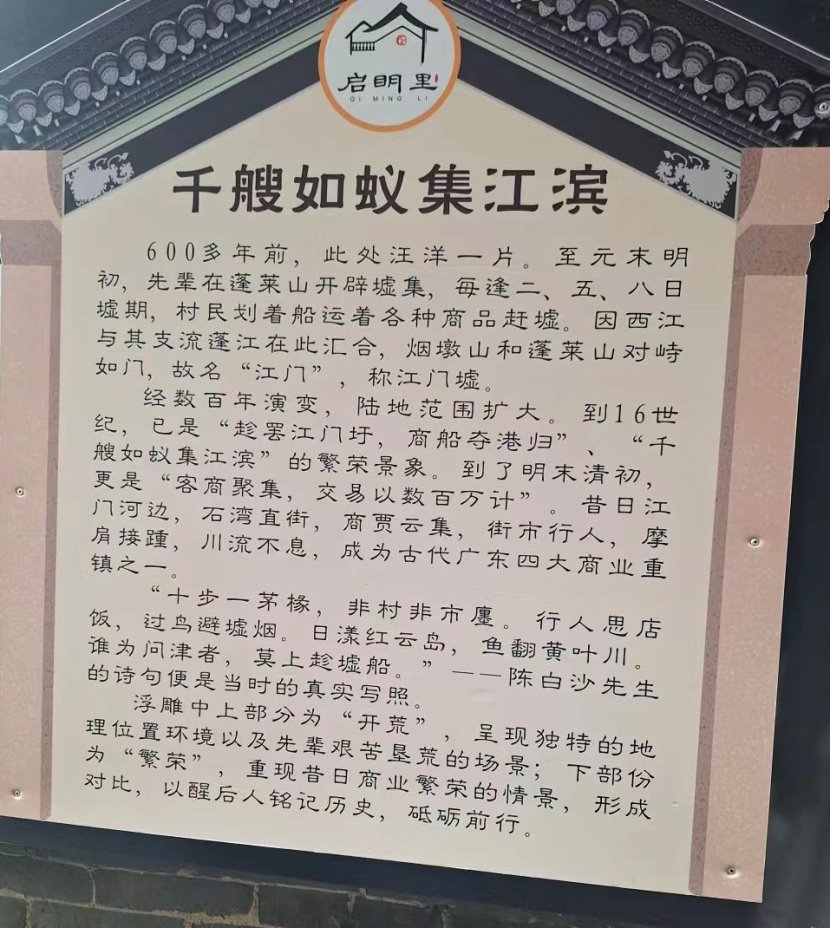 启明里
QI MING LI
千艘如蚁集江滨
600多年前，此处汪洋一片。至元末明
初，先辈在蓬莱山开辟墟集，每逢二、五、八日
墟期，村民划着船运着各种商品赶墟。因西江
与其支流蓬江在此汇合，烟墩山和蓬莱山对峙
如门，故名“江门”，称江门墟。
经数百年演变，陆地范围扩大。到16世
纪，已是“趁罢江门圩，商船夺港归”、“千
艘如蚁集江滨”的繁荣景象。到了明末清初，
更是“客商聚集，交易以数百万计”。昔日江
门河边，石湾直街，商贾云集，街市行人，摩
肩接踵，川流不息，成为古代广东四大商业重
镇之一。
“十步一茅椽，非村非市廛。行人思店
饭，过鸟避墟烟。日漾红云岛，鱼翻黄叶川。
谁为问津者，莫上趁墟船。”——陈白沙先生
的诗句便是当时的真实写照。
浮雕中上部分为“开荒”，呈现独特的地
理位置环境以及先辈艰苦垦荒的场景；下部份
为“繁荣”，重现昔日商业繁荣的情景，形成
对比，以醒后人铭记历史，砥砺前行。